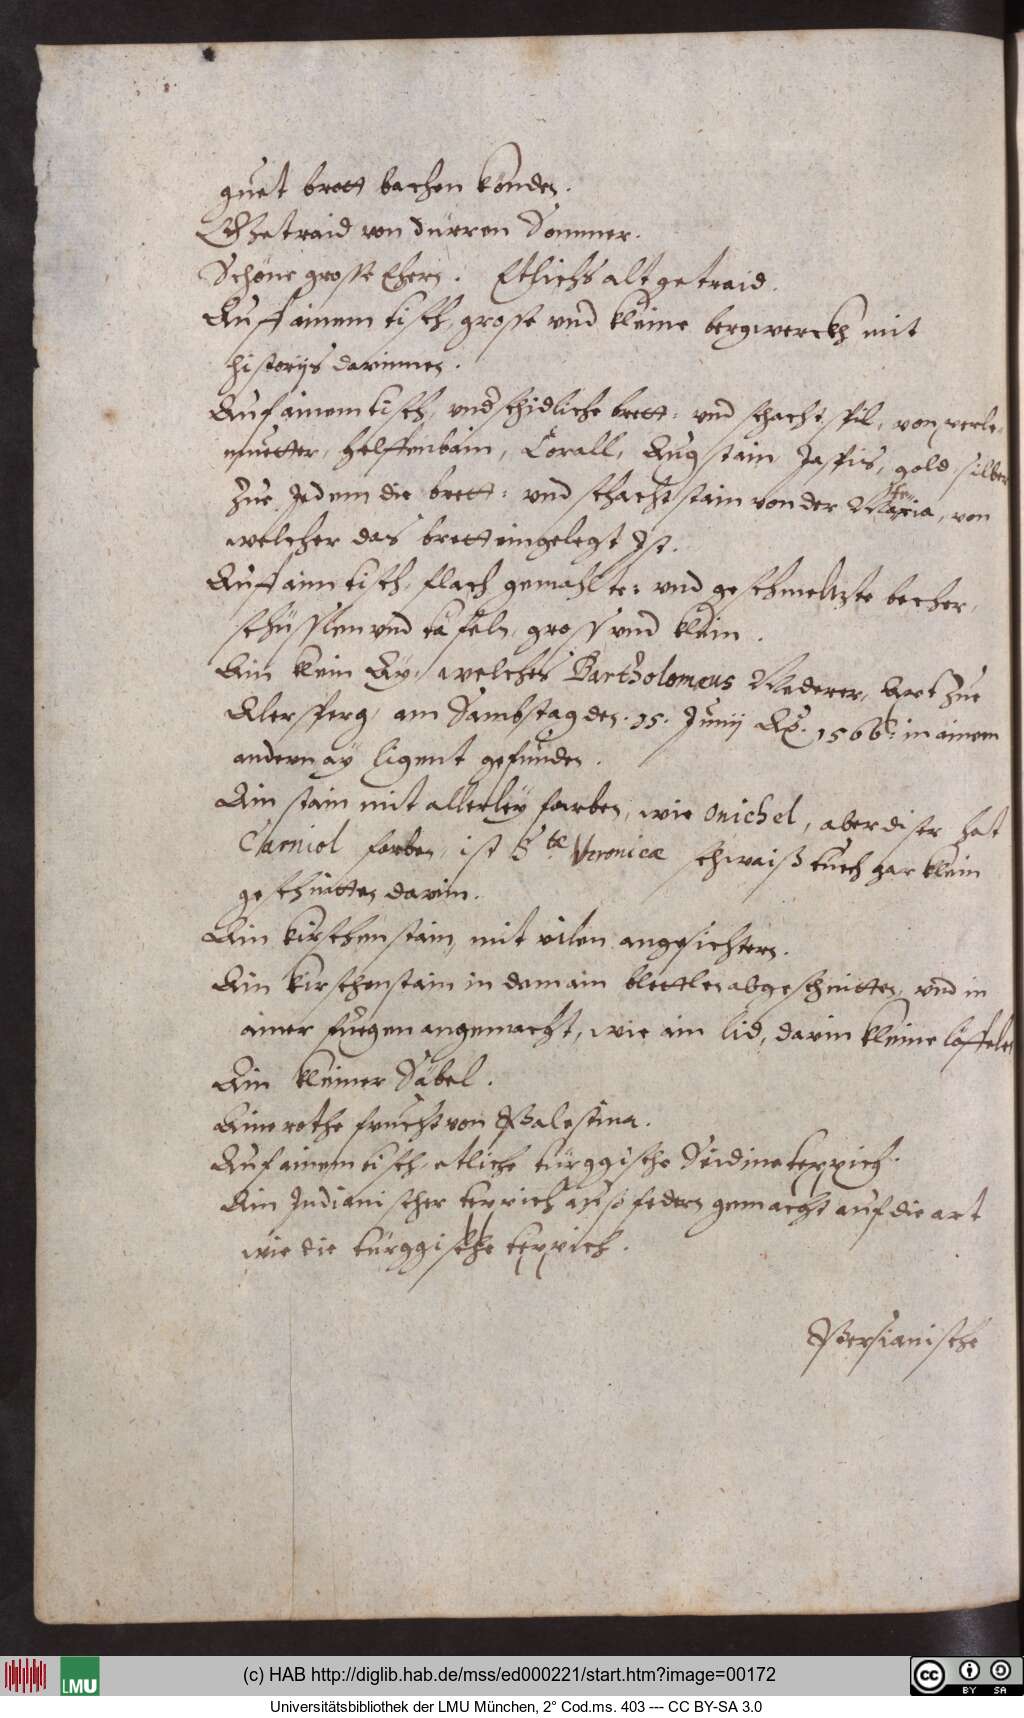 guet brott bachen konden.
Getraid von dürren Sommer.
Schöne grosse Ehern. Etlichs alt getraid.
Auff ainem tisch, grosse vnd kleine bergwerckh mit
historijs darinnen.
Auf ainem tisch, vndschidliche brett: vnd schacht spil, von perle-
muetter, helffenbain, Corall, Augstain Jaspis, gold silber
zue Jedem die brett: vnd schacht stain von der Materia, von
welcher das brett eingelegt Ist.
Auff aim tisch, flach gemahlte: vnd geschmeltzte becher,
schüsslen vnd tafeln, gross vnd klein.
Ain klein Ay, welches Bartholomeus Maderer, Artzt zue
Alersperg, am Sambstag den .15. Junij Ao. 1566: in ainem
andern ay ligent gefunden.
Ain stain mit allerley farben, wie Onichel, aber diser hat
Carniol farben, ist Stæ Veronicæ schwaiß tuech gar klein
geschnitten darin.
Ain kirschenstain, mit vilen angesichtern.
Ain kirschenstain in dem ain blettlen abgeschnitten, vnd in
ainer fuegen angemacht, wie ain lid, darin kleine löffelen
Ain kleiner Säbel.
Aine rothe frucht von Palestina.
Auf ainem tisch, etliche türggische Seidine teppich.
Ain Indianischer teppich auß federn gemacht auf die art
wie die türggische teppich.
Persianische
(c) HAB http://diglib.hab.de/mss/ed000221/start.htm?image=00172
LMU
cc BY SA
Universitätsbibliothek der LMU München, 2° Cod.ms. 403 --- CC BY-SA 3.0